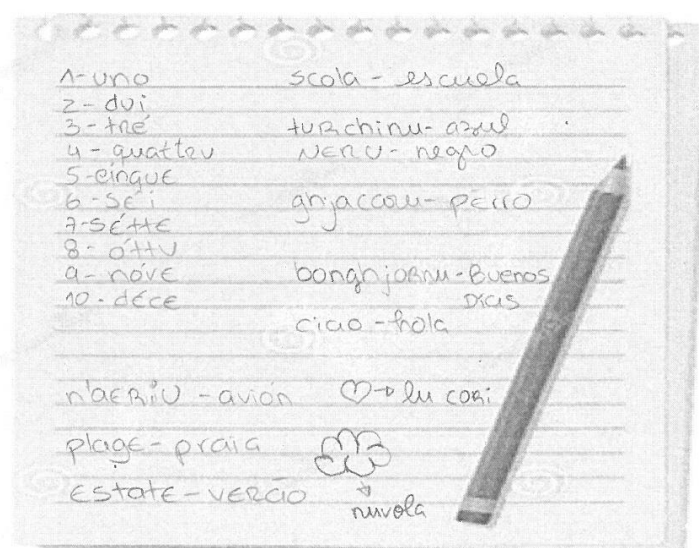 1-uno
2-dui
3-tré
4-quattru
5-cinque
6-séi
7-sétte
8-óttu
9-nóve
10-déce
scola - escuela
turchinu - azul
NERU - negro
ghjaccaru - perro
bonghjornu - Buenos
Dias
ciao - hola
n'aeriu - avión
♡→ lu cori
plage - praia
estate - verão
nuvola